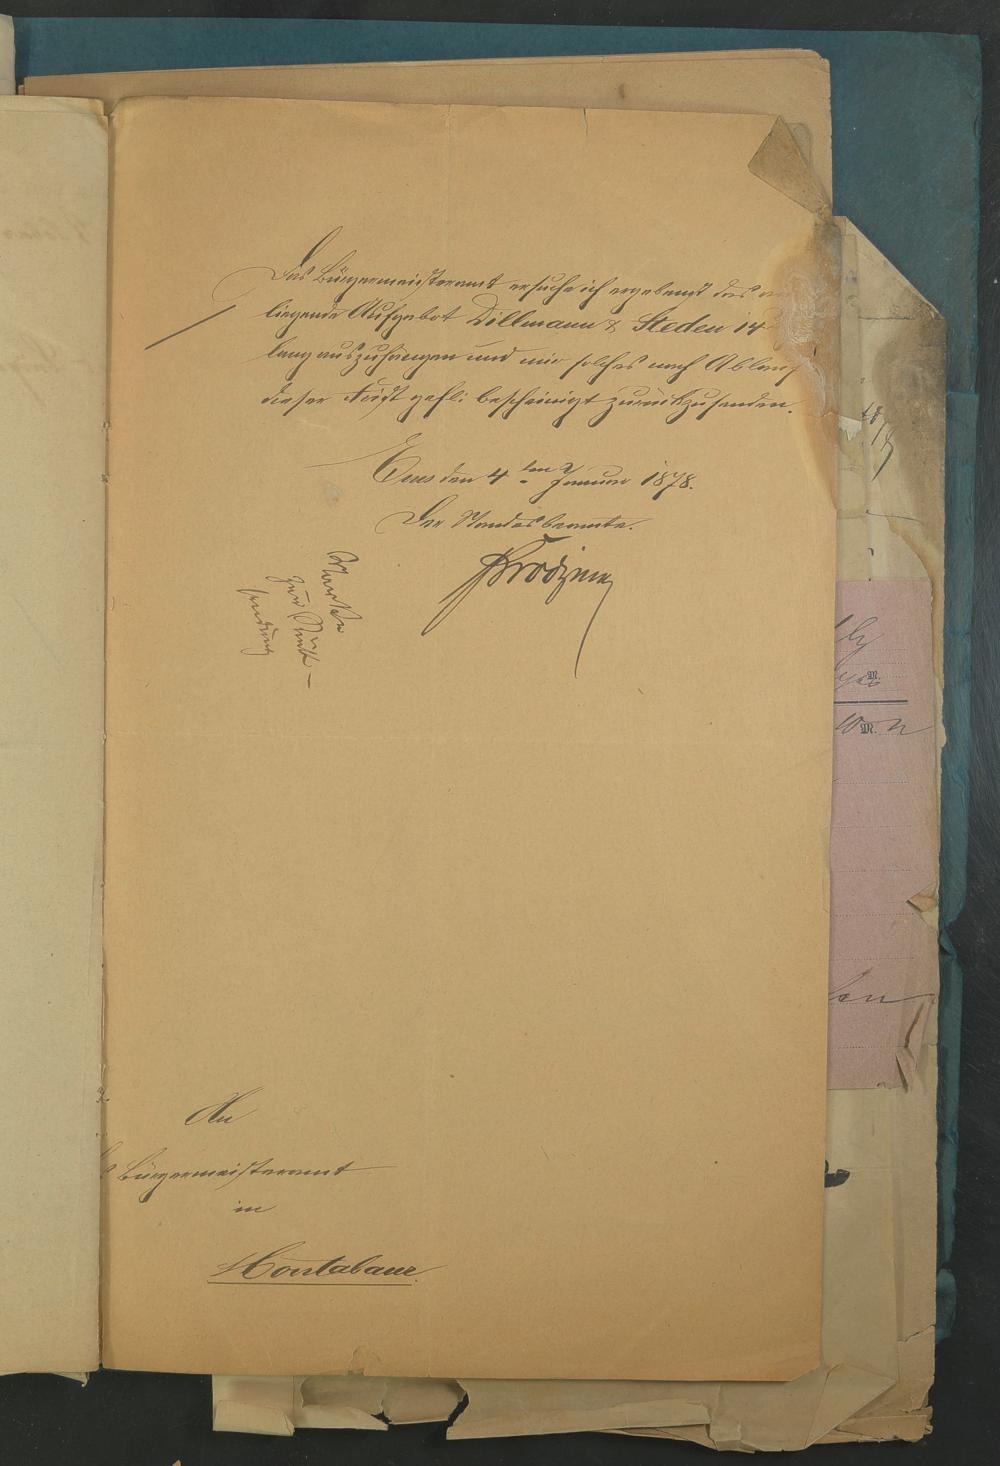 Das Bürgermeisteramt ersuche ich ergebenst das an
liegende Aufgebot Dillmann & Steden 14
lang auszuhängen und mir solches nach Ablauf
dieser Frist gefl: bescheinigt zurückzusenden.
Ems den 4ten Januar 1878.
Der Standesbeamte.
Marke
zur Rück-
sendung
An
Bürgermeisteramt
in
Montabaur.